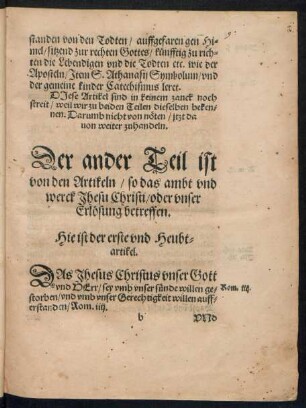 standen von den Todten / auffgefaren gen Hi-
mel / sitzend zur rechten Gottes / künfftig zu rich-
ten die Lebendigen vnd die Todten etc. wie der
Aposteln / Item S. Athanasij Symbolum / vnd
der gemeine kinder Catechismus leret.
DIese Artikel sind in keinem zanck noch
streit / weil wir zu beiden Teilen dieselben beken-
nen. Darumb nicht von nöten / jtzt da
uon weiter zuhandeln.
Der ander Teil ist
von den Artikeln / so das ambt vnd
werck Jhesu Christi / oder vnser
Erlösung betreffen.
Hie ist der erste vnd Heubt-
artikel.
DAs Jhesus Christus vnser Gott
vnd HErr / sey vmb vnser sünde willen ge-
Rom. iiij.
storben / vnd vmb vnser Gerechtigkeit willen auff-
erstanden / Rom. iiij.
b
VNd